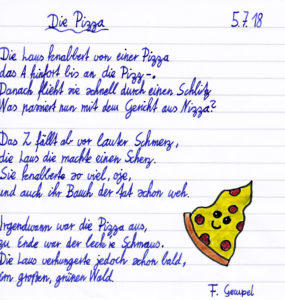 Die Pizza 5.7.18
Die Laus knabbert von einer Pizza
das A hinfort bis an die Pizz-.
Danach flieht sie schnell durch einen Schlitz
Was passiert nun mit dem Gericht aus Nizza?
Das Z fällt ab vor lauter Schmerz,
die Laus die machte einen Scherz.
Sie knabberte so viel, oje,
und auch ihr Bauch der tat schon weh.
Irgendwann war die Pizza aus,
zu Ende war der leck're Schmaus.
Die Laus verhungerte jedoch schon bald,
im großen, grünen Wald.
F. Gempel